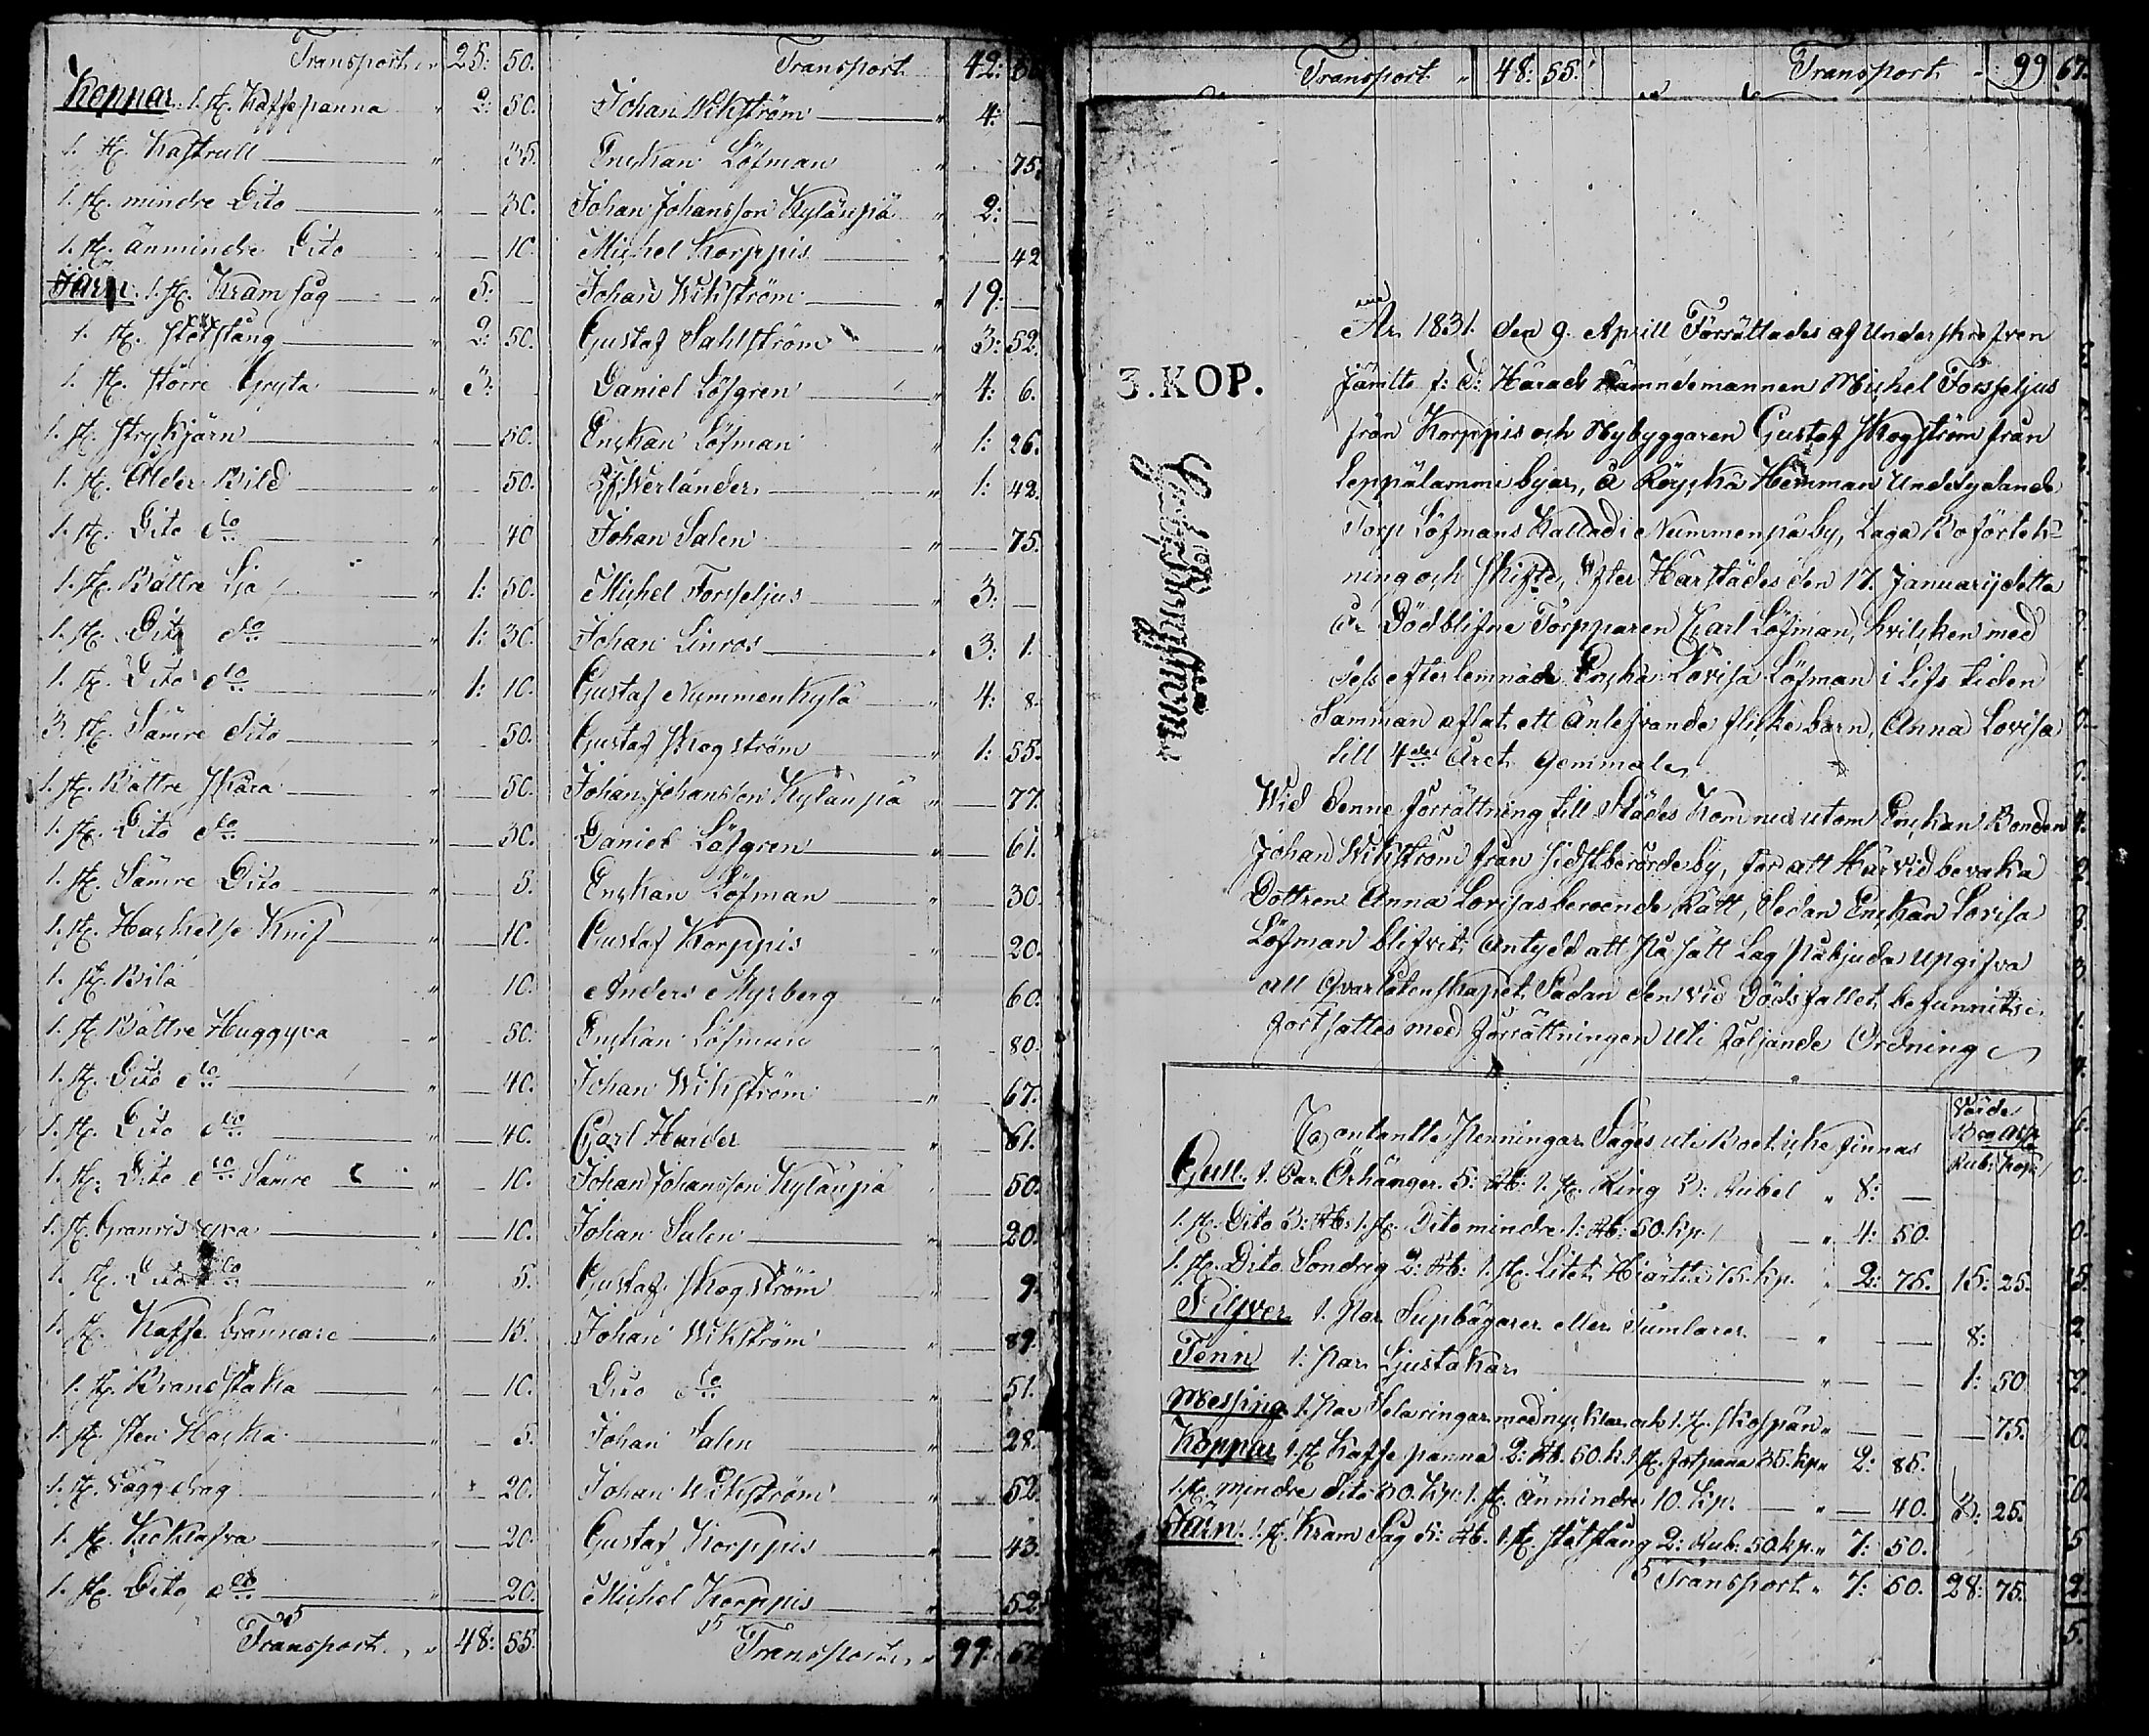 Transport " 25: 50. Transport 42:
Koppar: 1. st. Kaffepanna " 2: 50. Johan Wikström " 4: —
1. st. Kastrull " 35. Enckan Löfman " 75.
1. st. mindre Dito " — 30. Johan Johansson Kylänpä " 2: —
1. st. änmindre Dito — 10. Michel Korppis " — 42
Järn: 1. st. Kram såg " 5: Johan Wikström " 19: —
1. st. stötstång " 2: 50. Gustaf Sahlström " 3: 52.
1. st. större Gryta " 3: Daniel Löfgren " 4: 6.
1. st. strykjärn " — 50. Enckan Löfman " 1: 26.
1. st. Alder Bild " 50. Werlander " 1: 42.
1. st. Dito do " 40 Johan Salen " — 75.
1. st. Bättre Lja " 1: 50. Michel Forsseljus " 3: —
1. st. Dito do " 1: 30. Johan Linros " 3: 1.
1. st. Dito do " 1: 10. Gustaf Nummenkylä " 4: 8.
3. st. Sämre dito " 50. Gustaf Skogström " 1: 55.
1. st. Bättre Skära " — 50. Johan Johansson Kylänpä " — 77.
1. st. Dito do " — 30. Daniel Löfgren " — 61.
1. st. Sämre Dito " — 5. Enckan Löfman " — 30.
1. st. Hackelse Knif " — 10. Gustaf Korppis " — 20.
1. st. Bila " 10. Anders Myrberg " 60.
1. st. Bättre Huggyxa " 50. Enckan Löfman " 80.
1. st. Dito do " — 40. Johan Wikström " — 67.
1. st. Dito do " — 40. Carl Haider " 61.
1. st. Dito do Sämre " — 10. Johan Johansson Kylänpä 50.
1. st. Granris yxa " — 10. Johan Salen " — 20.
1. st. Dito do " 5. Gustaf Skogström " — 9.
1. st. Kaffe brännare " — 15. Johan Wikström " — 89.
1. st. Brandstaka " — 10. Dito do " — 51.
1. st. sten Hacka " — 5. Johan Salen " — 28.
1. st. väggdrag " 20. Johan Wikström " — 52.
1. st. " — 20. Gustaf Korppis " — 43.
1. st. Dito do " — 20. Michel Korppis " — 52.
Transport " 48: 55. Transport " 99: 67
Transport " 48: 55. Transport " 99 67.
3. KOP.
År 1831. den 9. Aprill Förrättades af Underskrefven
jämte f: d: Härads Nämndemannen Michel Forsseljus
från Korppis och Nybyggaren Gustaf Skogström från
Leppälammi byar, å Röyskä Hemman Underlydande
Torp Löfmans Kallad i Nummenpä by, Laga Boförtek=
ning och Skifte, Efter Härstädes den 17. Januarij detta
år Dödblifne Torpparen Carl Löfman, hvilcken med
dess efterlemnade Encka Lovisa Löfman i Lifs tiden
Samman aflat ett änlefvande flicke barn, Anna Lovisa
till 4de året Gammal.
Wid denne förrättning till Städes Kom nu utom Enckan Bonden
Johan Wikström från sidstberörde by, for att Härvid bevaka
Dottren Anna Lovisas beroende Rätt, Sedan Enckan Lovisa
Löfman blifvit Antydd att på sätt Lag påbjuda Upgifva
all Qvarlåtenskapet Sådan den vid Dödsfallet befunnits.
fortsattes med förrättningen Uti följande Ordning
Värde
Rub: Kop:
Contantte Penningar Säges uti Boet icke finnas
Gull. 1. Par Örhänger 5: Rb: 1. st. Ring 3: Rubel " 8: —
1. st. Dito 3: Rb: 1. st. Dito mindre 1: Rb: 50. Kp. — " 4: 50.
1. st. Dito Sondrig 2: Rb: 1. st. Litet Hjärtta 75. Kp. " 2: 75. 15: 25.
Silfver 1. Par Supbägarer eller Tumlarer — " — 8:
Tenn 1. Par Ljustakar " — — 1: 50
Messing. 1. Par Selaringar med nycklar och 1. st. Skospän " — — — 75.
Koppar 1. st. Kaffe panna 2: Rb. 50. K. 1. st. Fotpana 35. Kp " 2: 85.
1. st. mindre dito 30. Kp. 1. st. Änmindre 10. Kp. — " — 40. 3: 25.
Järn. 1. st. Kram Såg 5: Rb. 1. st. Stötstång 2: Rub: 50 Kp. " 7: 50.
Transport " 7: 50. 28: 75.